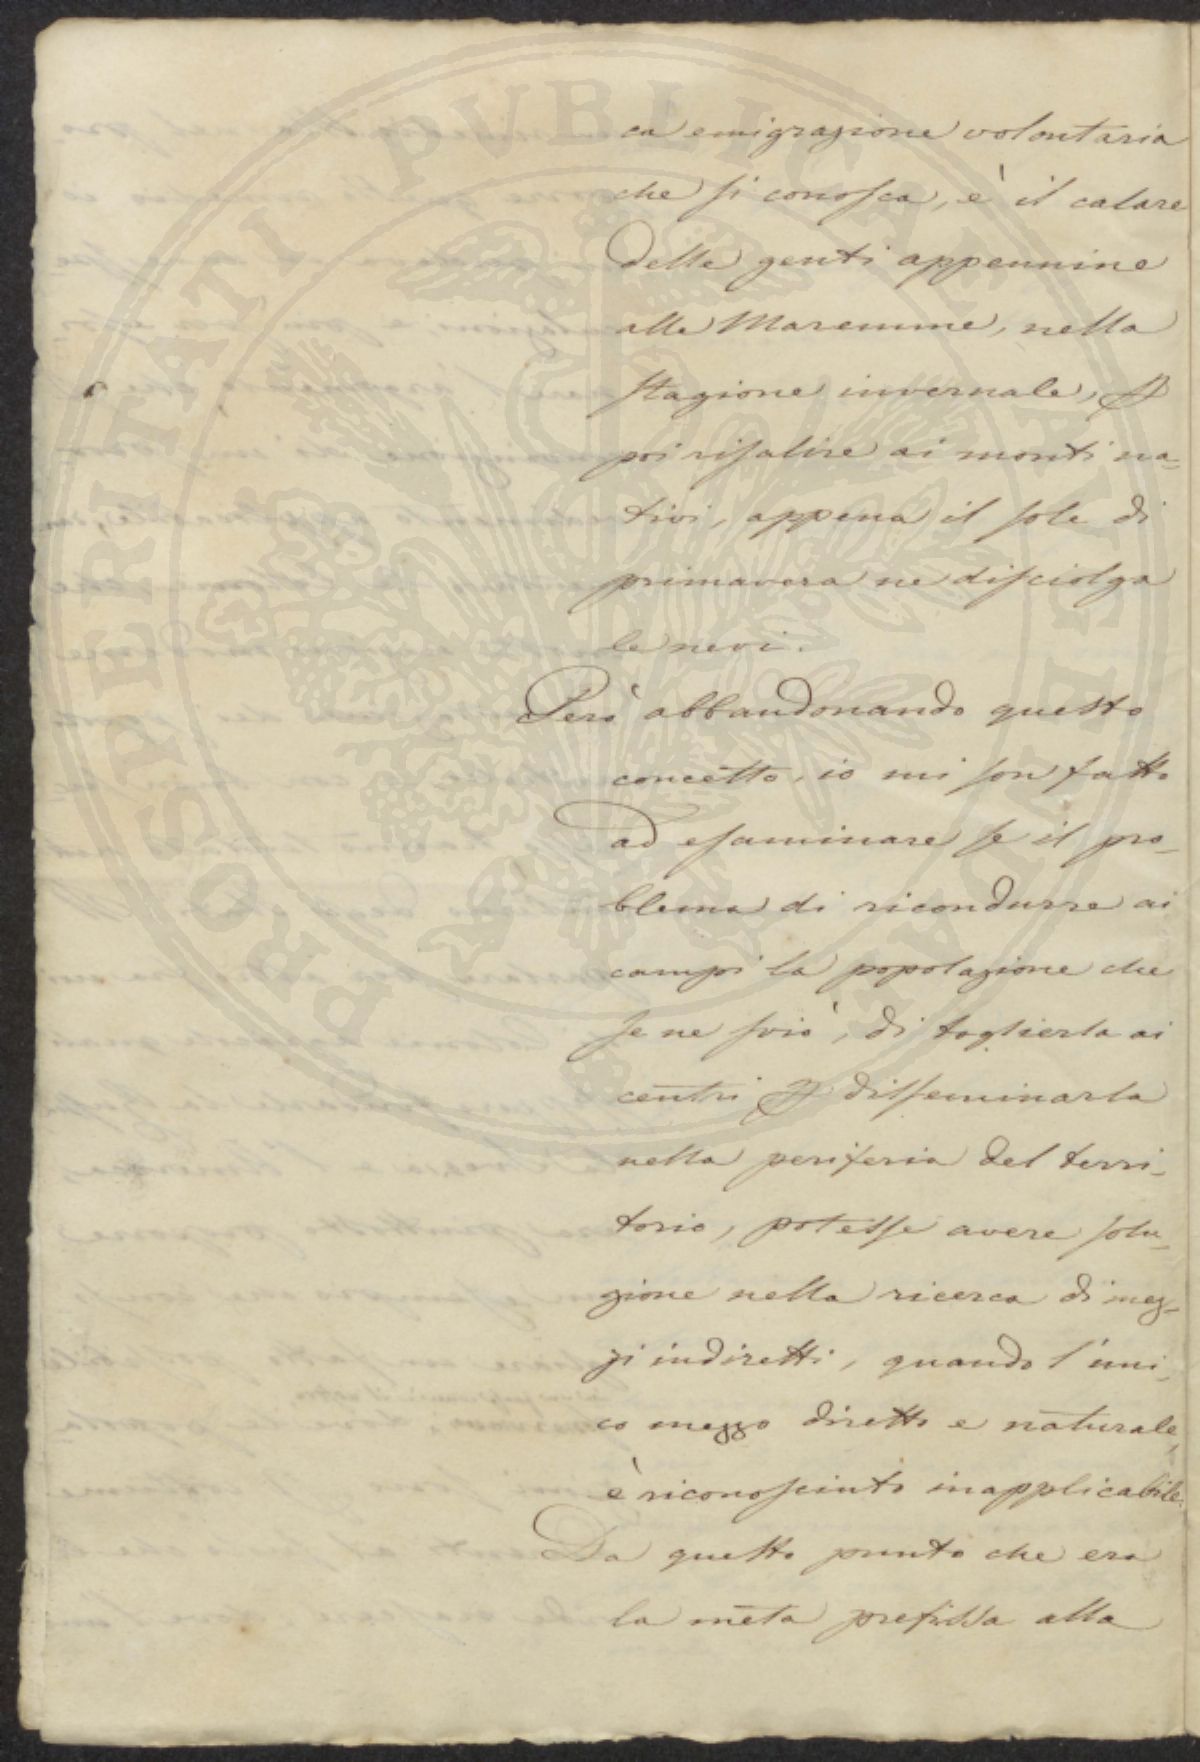 PROSPERITATI PUBLICAE AUGENDAE
ca emigrazione volontaria
che si conosca, è il calare
delle genti appennine
alle Maremme, nella
stagione invernale,
poi risalire ai monti na-
tivi, appena il sole di
primavera ne disciolga
le nevi.
Però abbandonando questo
concetto, io mi son fatto
ad esaminare se il pro-
blema di ricondurre ai
campi la popolazione che
se ne sviò, di toglierla ai
centri disseminarla
nella periferia del terri-
torio, potesse avere solu-
zione nella ricerca di mez-
zi indiretti, quando l'uni-
co mezzo diretto e naturale,
è riconosciuto inapplicabile.
Da questo punto che era
la mèta prefissa alla